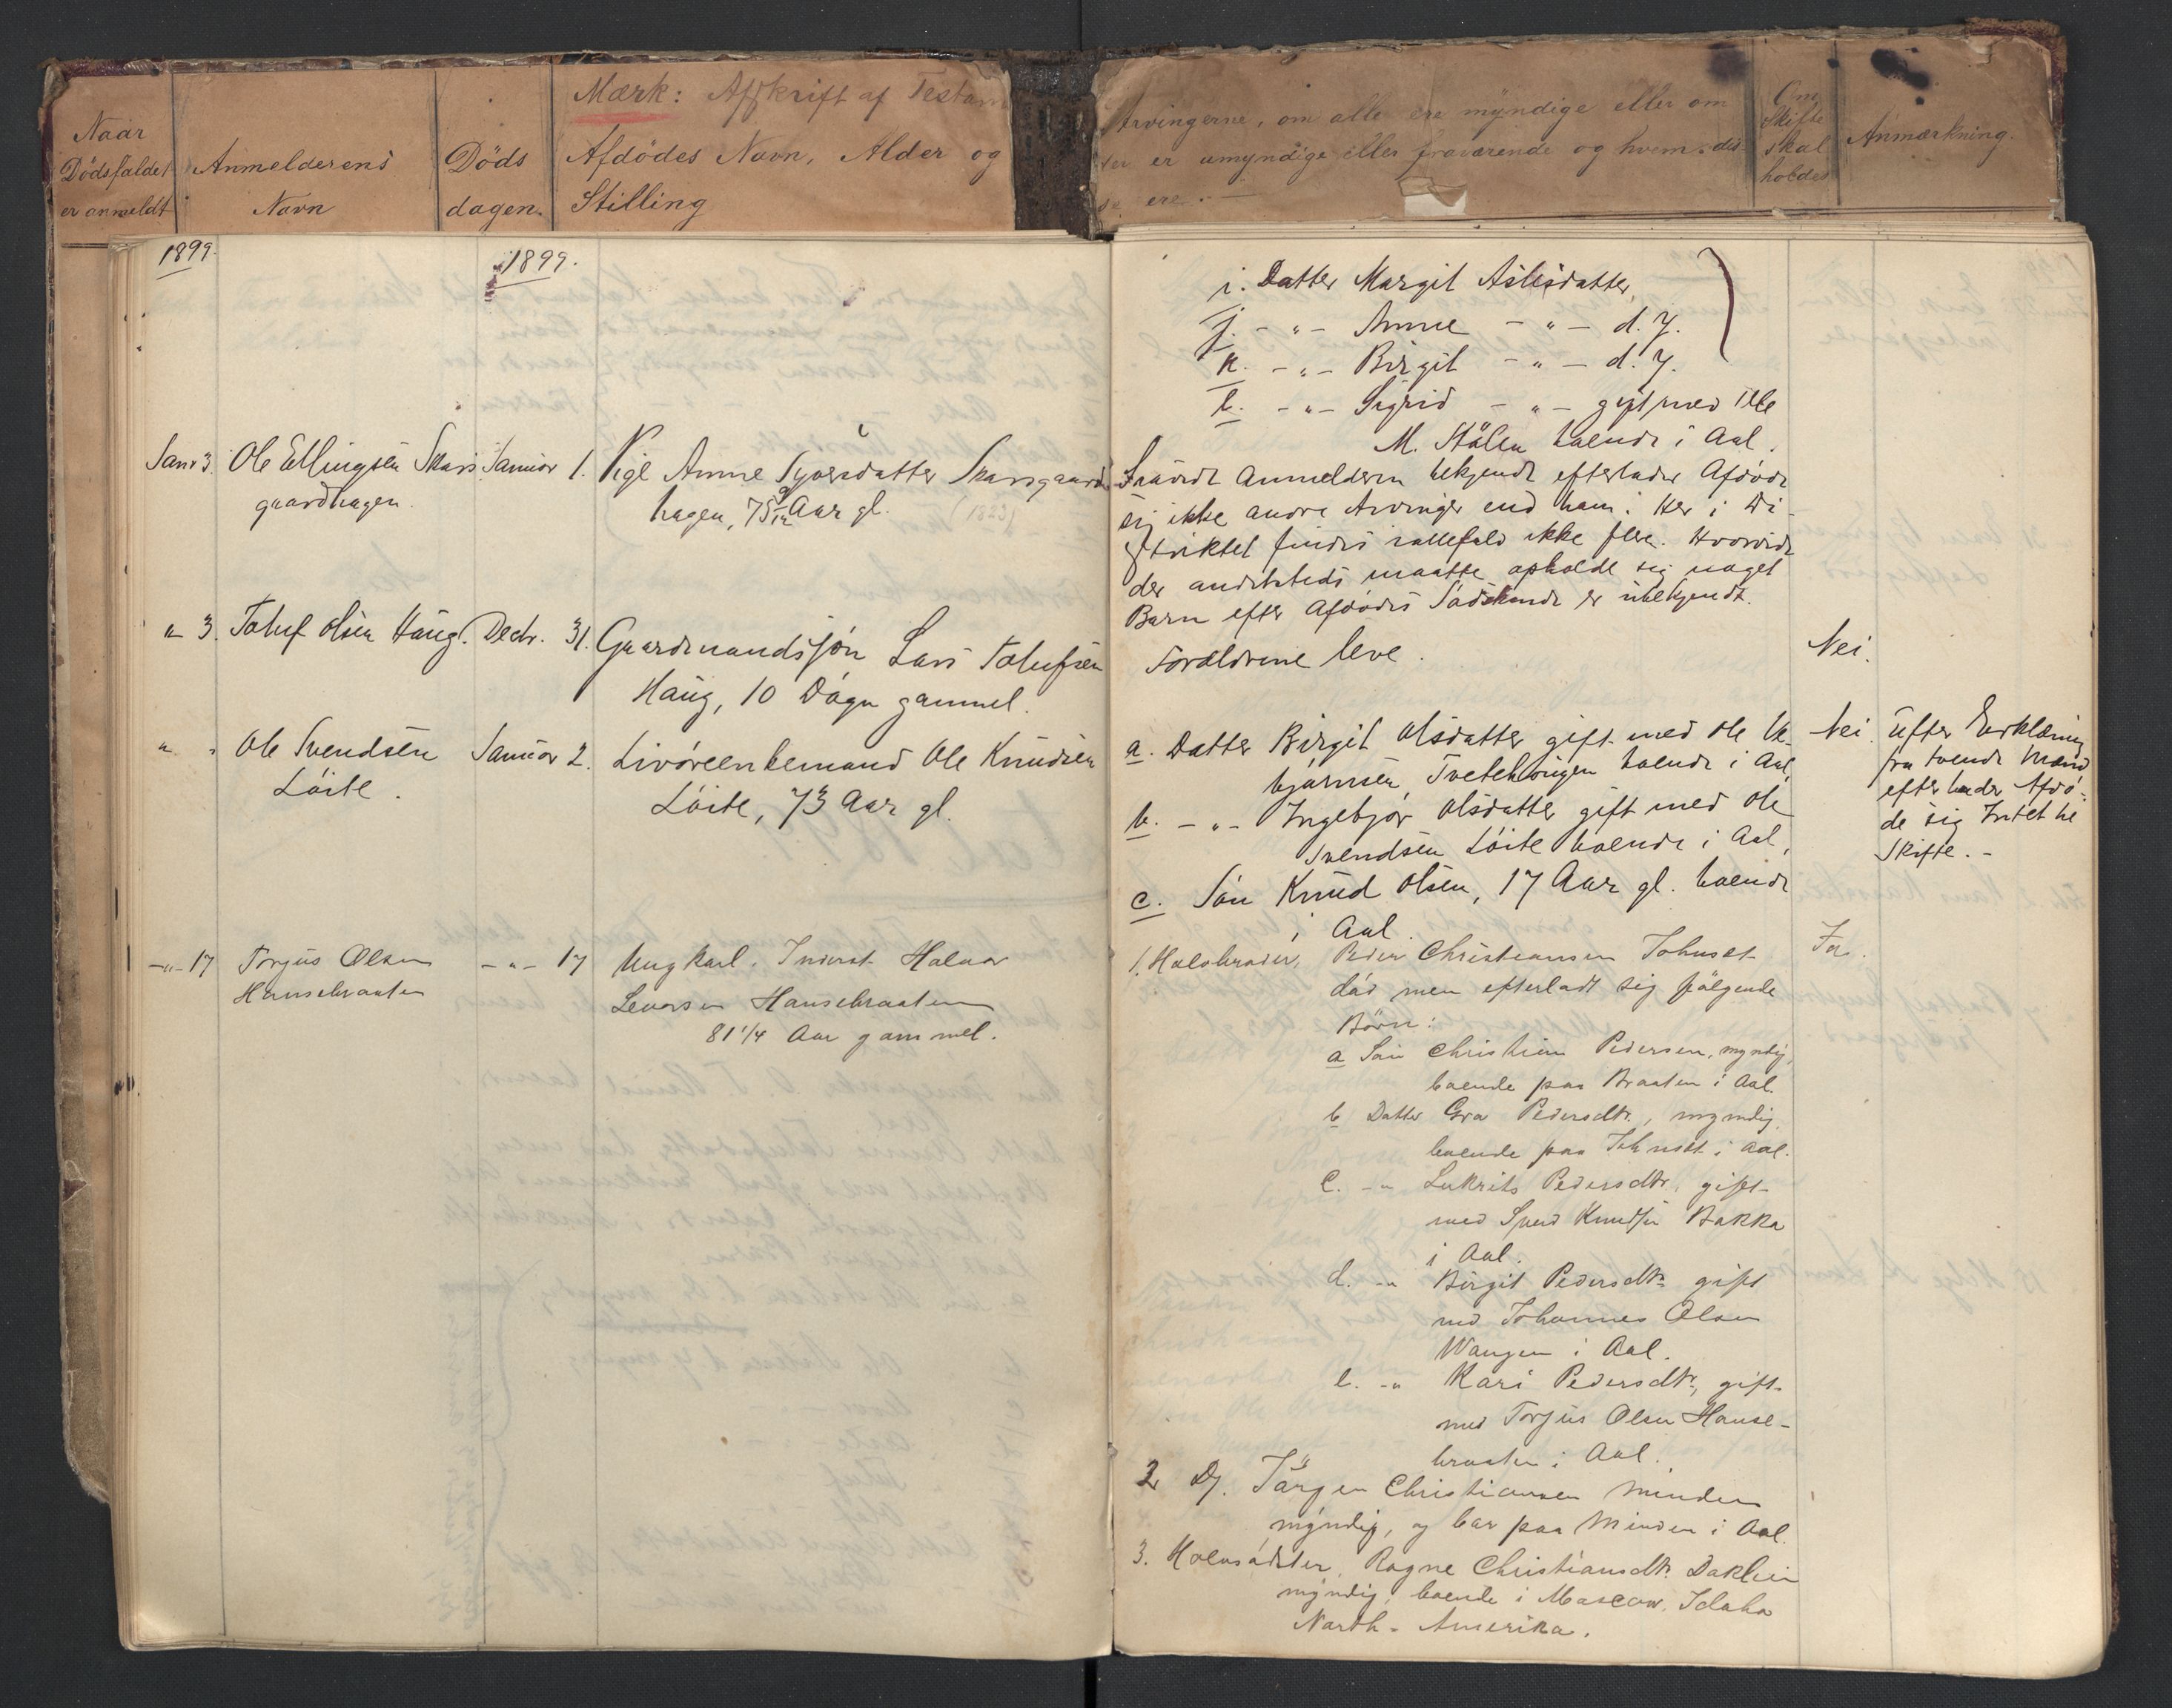 Mærk: Afskrift af Testam
Naar
Dödsfaldet
er anmeldt
Anmelderens
Navn
Döds
dagen.
Afdödes Navn, Alder og
Stilling
Arvingerne, om alle ere myndige eller om
der er umyndige eller fraværende og hvem dis
se ere. —
Om
Skifte
skal
holdes
Anmærkning.
1899.
1899.
i. Datter Margit Aslesdatter,
j. - " - Anne - " - d. y.
k. - " - Birgit - " - d. y.
l. - " - Sigrid - " - gift med Ole
M. Stålen boende i Aal.
Janr 3. Ole Ellingsen Skars
gaardhagen.
Januar 1.
Pige Anne Syversdatter Skarsgaard
hagen, 75 9/12 Aar gl. (1823)
Saavidt Anmelderen bekjendt efterlader Afdöde
sig ikke andre Arvinger end ham. Her i Di-
striktet findes iallefald ikke flere. Hvorvidt
der andetsteds maatte opholde sig noget
Barn efter Afdödes Södskende er ubekjendt.
" 3. Toluf Olsen Haug.
Decbr. 31.
Gaardmandssön Lars Tolufsen
Haug, 10 Dage gammel.
Forældrene leve.
Nei.
" " Ole Svendsen
Löite.
Januar 2.
Livöreenkemand Ole Knudsen
Löite, 73 Aar gl.
a. Datter Birgit Olsdatter gift med Ole
björnsen Tveitehougen boende i Aal,
b. - " - Ingebjör Olsdatter gift med Ole
Svendsen Löite boende i Aal,
c. Sön Knud Olsen, 17 Aar gl. boende
i Aal.
Nei.
Efter Erklæring
fra tvende Mænd
efterlader Afdö-
de sig Intet til
Skifte. -
- " - 17 Torjus Olsen
Hansebraaten
- " - 17
Ungkarl. Inderst Halvor
Levorsen Hansebraaten
81 1/4 Aar gammel.
1. Halvbroder, Peder Christiansen Tohuset
död men efterladt sig fölgende
Börn:
a Sön Christian Pedersen, myndig,
boende paa Braaten i Aal.
b Datter Gro Pedersdtr., myndig,
boende paa Tohuset i Aal.
c. - " Lukrits Pedersdtr. gift
med Svend Knudsen Bakka
i Aal.
d. - " Birgit Pedersdtr. gift
med Johannes Olsen
Wangen i Aal.
e. - " Kari Pedersdtr, gift
med Torjus Olsen Hanse-
braaten i Aal.
2 Dj. Jörgen Christiansen Minden
myndig, og bor paa Minden i Aal.
3. Halvsöster, Ragne Christiansdtr. Daklien
myndig, boende i Moscow, Idaho
North-Amerika.
Ja.